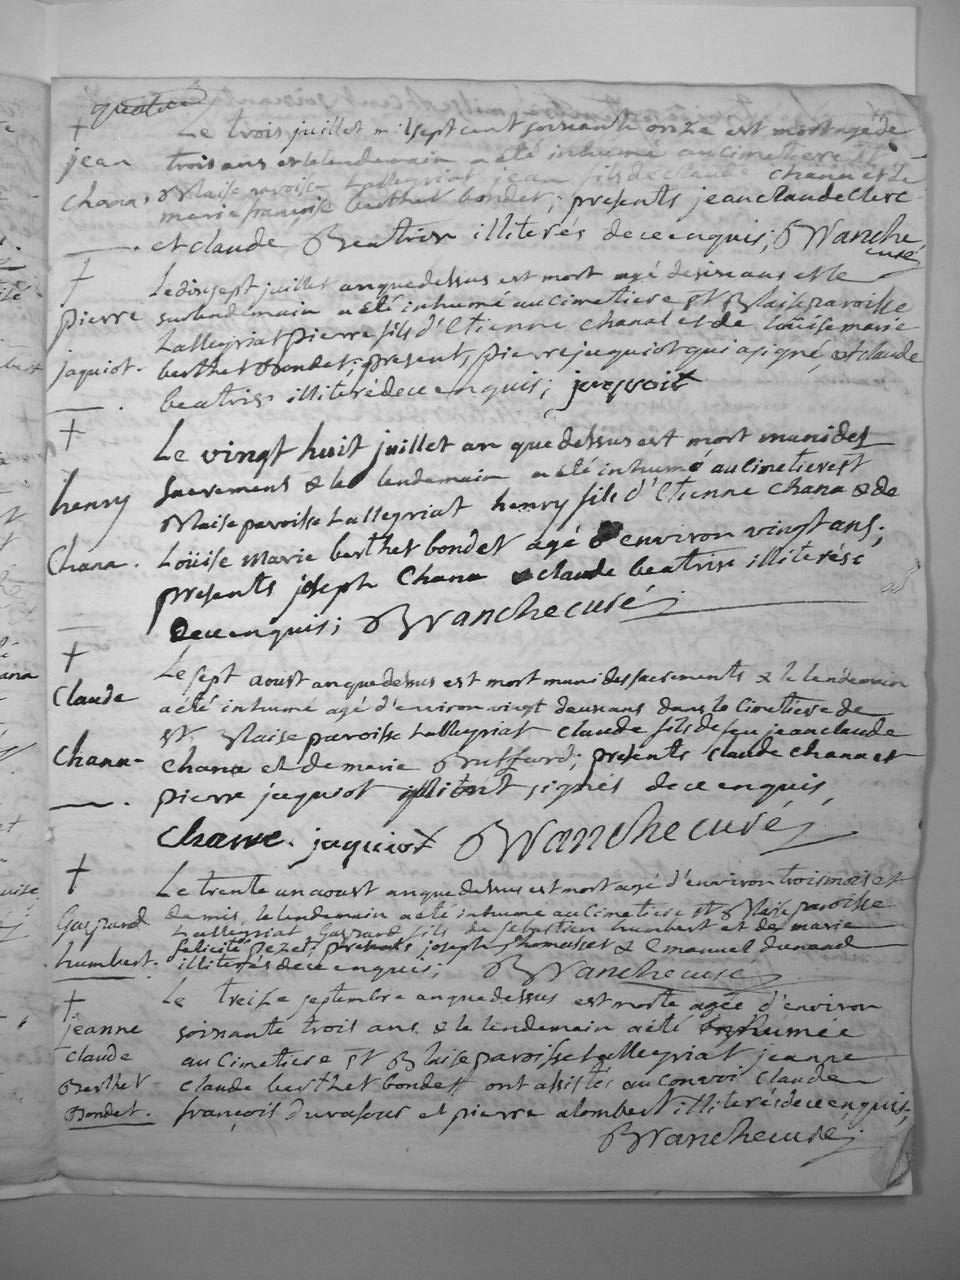 quatre
Le trois juillet mil sept cent soixante onze est mort agé de
jean trois ans et le lendemain a été inhumé au cimetiere St
Chana. Blaise paroisse Lallegriat jean fils de claude Chana et de
marie françoise berthet bondet; presents jean claude clerc
et claude Beatrix illiterés de ce enquis; BVranche
curé
Le dix sept juillet an que dessus est mort agé de six ans et le
pierre surlendemain a été inhumé au cimetiere St Blaise paroisse
Lallegriat pierre fils d'Etienne Chanal et de Loüise marie
jaquiot. berthet Bondet; present, pierre jaquiot qui a signé, et claude
beatrix illiteré de ce enquis; jaquiot
Le vingt huit juillet an que dessus est mort muni des
henry sacremens & le lendemain a été inhumé au Cimetiere St
Blaise paroisse Lallegriat henry fils d'Etienne Chana & de
Chana. Loüise Marie berthet bondet agé d'environ vingt ans;
presents joseph Chana & claude beatrix illiterés
de ce enquis; BVranche curé
Le sept aoust an que dessus est mort muni des sacrements & le lendemain
Claude a été inhumé agé d'environ vingt deux ans dans le Cimetiere de
St Blaise paroisse Lallegriat claude fils de feu jean claude
Chana chana et de marie Buffard; presents claude Chana et
pierre jaquiot signés de ce enquis
Chane. jaquiot BVranche curé
Le trente un aoust an que dessus est mort agé d'environ trois mois et
Gaspard demis, le lendemain a été inhumé au Cimetiere St Blaise paroisse
Lallegriat Gaspard fils de Sebastien humbert et de marie
felicité Pezet, presents joseph Thomasset & Emanuel dunand
humbert. illiterés de ce enquis; BVranche curé
Le treise septembre an que dessus est morte agée d'environ
jeanne soixante trois ans & le lendemain a été inhumée
claude au Cimetiere St Blaise paroisse Lallegriat jeanne
Berthet claude berthet bondet ont assistés au convoi claude
Bondet. françois duvafour et pierre alombert illiterés de ce enquis;
BVranche curé